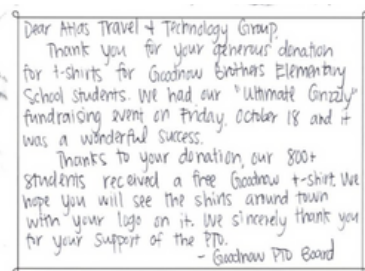 Dear Atlas Travel & Technology Group,
Thank you for your generous donation
for t-shirts for Goodnow Brothers Elementary
School students. We had our "Ultimate Grizzly"
fundraising event on Friday, October 18 and it
was a wonderful success.
Thanks to your donation, our 800+
students received a free Goodnow t-shirt. We
hope you will see the shirts around town
with your logo on it. We sincerely thank you
for your support of the PTO.
- Goodnow PTO Board